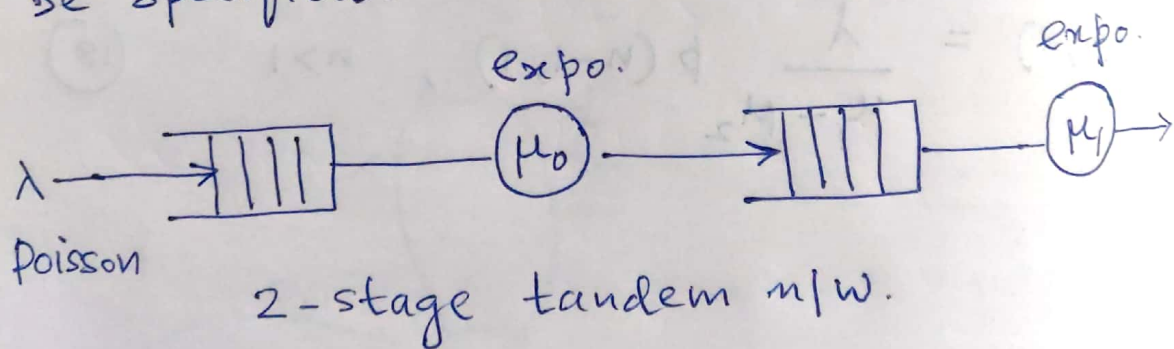 expo.
expo.
λ
μ₀
μ₁
Poisson
2-stage tandem n/w.